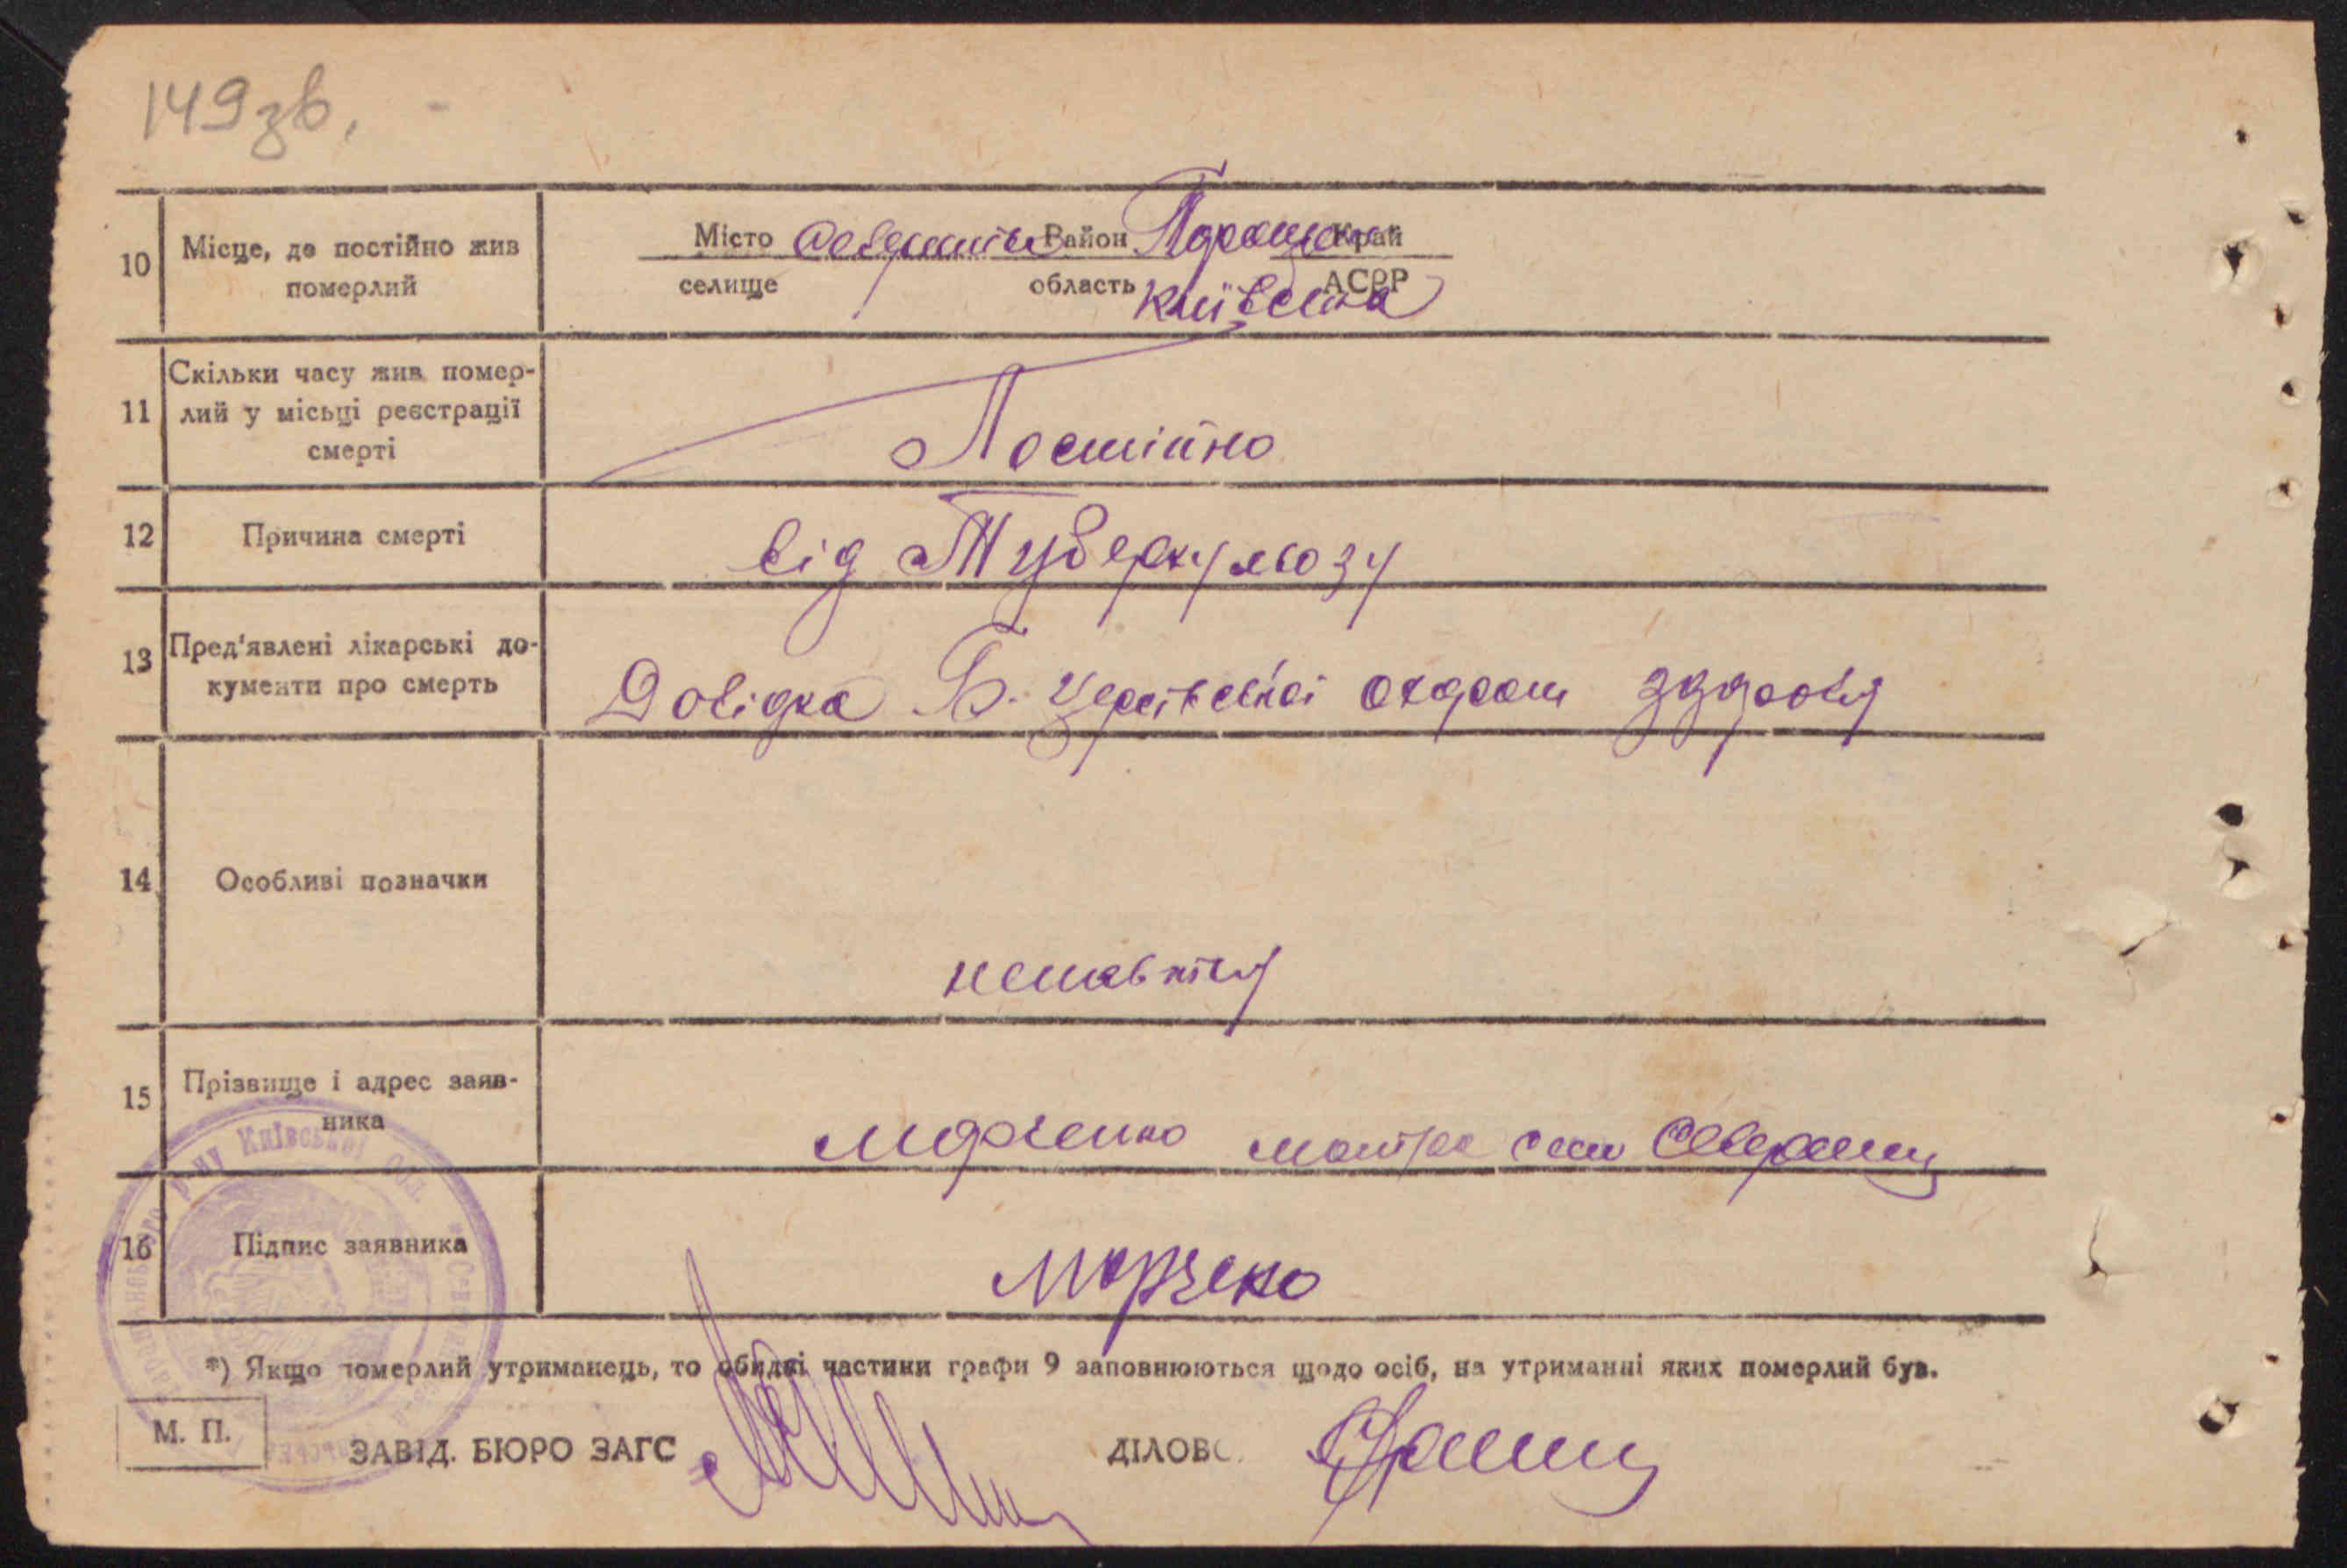 149 зв.
10 Місце, де постійно жив померлий
Місто Район Край
селище область Київська АСРР
11 Скільки часу жив помер-
лий у місьці реєстрації
смерті
Постійно
12 Причина смерті
від Туберкульозу
13 Пред'явлені лікарські до-
кументи про смерть
Довідка Б. Церківської охорони здоровя
14 Особливі позначки
15 Прізвище і адрес заяв-
ника
село
16 Підпис заявника
*) Якщо померлий утриманець, то обидві частини графи 9 заповнюються щодо осіб, на утриманні яких померлий був.
М. П.
ЗАВІД. БЮРО ЗАГС ДІЛОВ